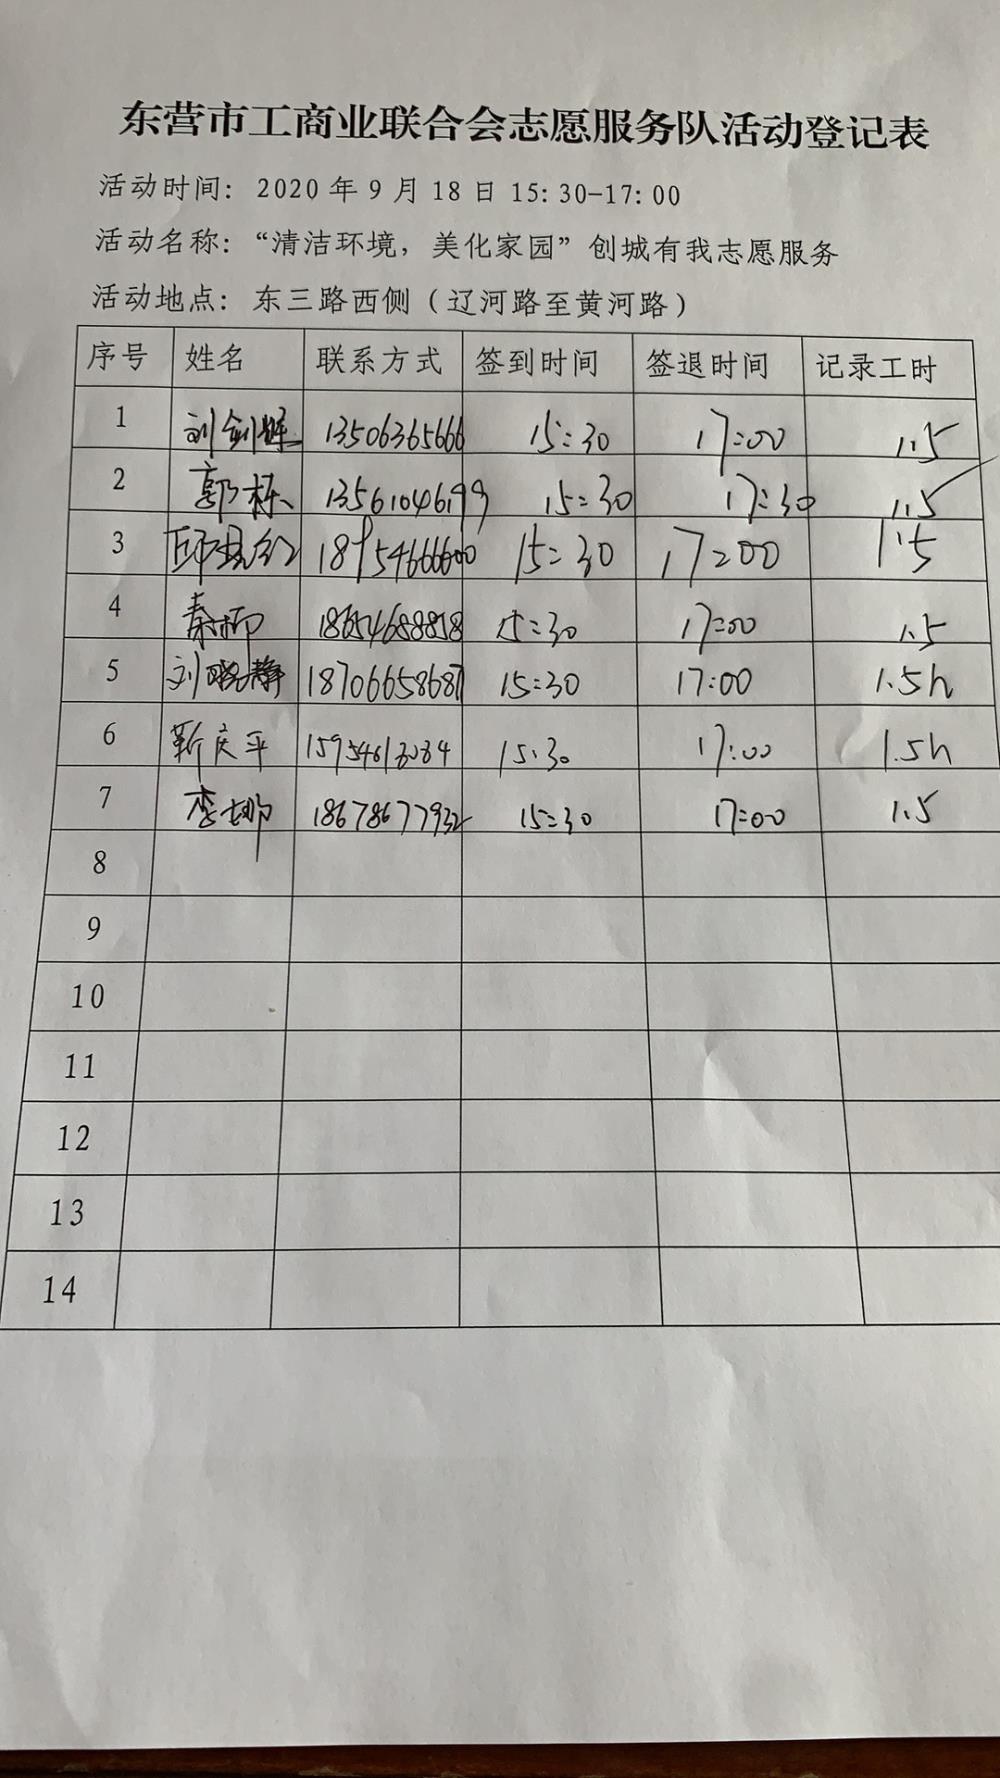 东营市工商业联合会志愿服务队活动登记表
活动时间：2020年9月18日15:30-17:00
活动名称：“清洁环境，美化家园”创城有我志愿服务
活动地点：东三路西侧（辽河路至黄河路）
序号 姓名 联系方式 签到时间 签退时间 记录工时
1 刘剑辉 13506365666 15:30 17:00 1.5
2 郭栋 13561046199 15:30 17:30 1.5
3 18954666600 15:30 17:00 1.5
4 秦柳 18654688858 15:30 17:00 1.5
5 刘晓静 18706658687 15:30 17:00 1.5h
6 靳庆平 15954613034 15:30 17:00 1.5h
7 李娜 18678677932 15:30 17:00 1.5
8
9
10
11
12
13
14